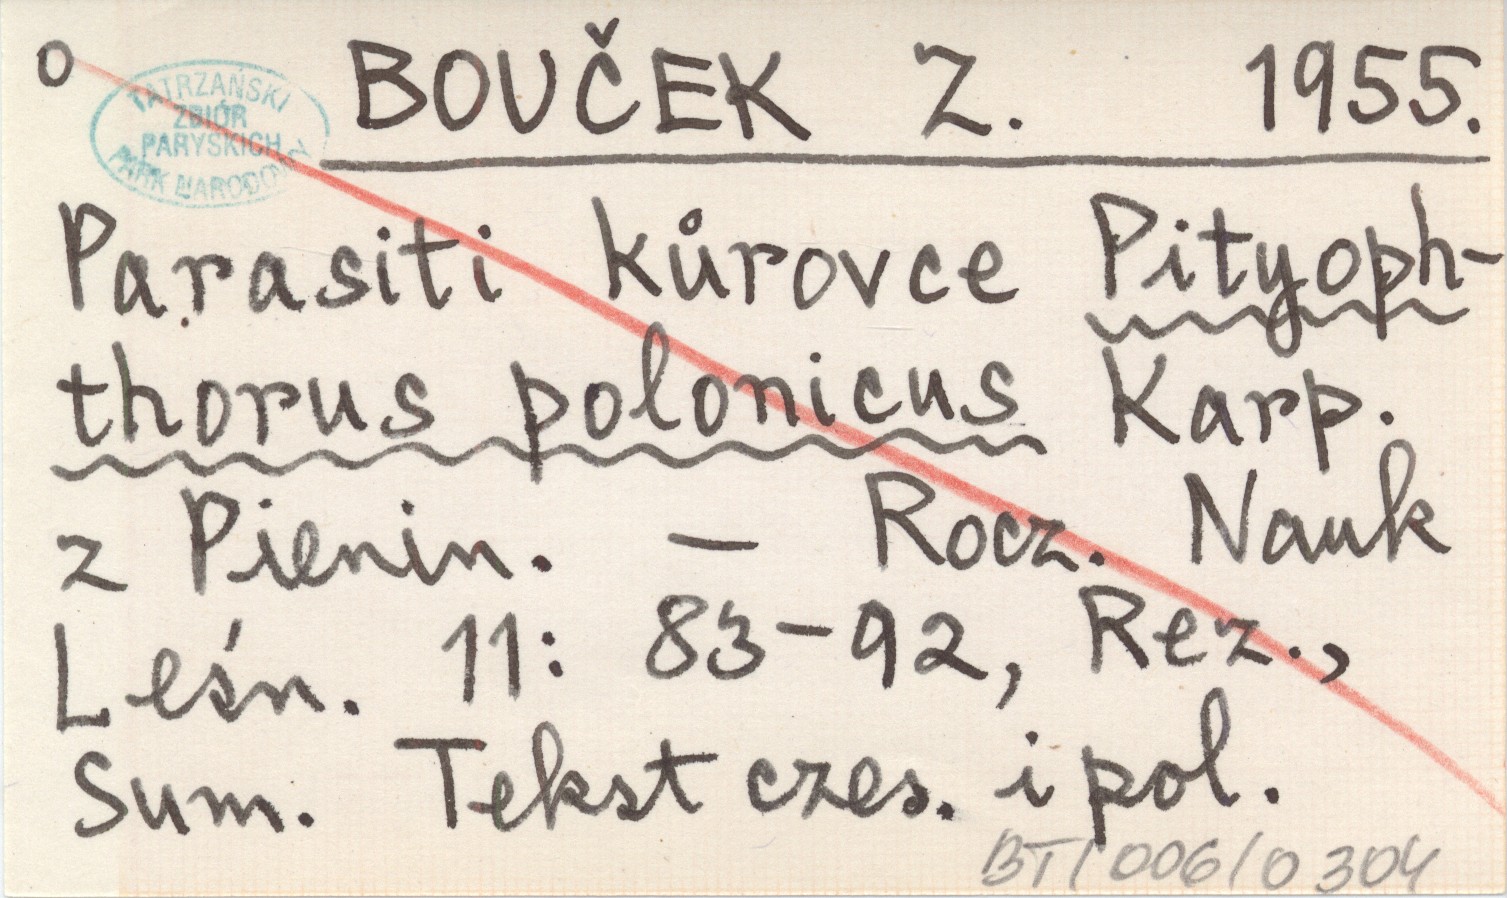 o
TATRZAŃSKI
ZBIÓR
PARYSKICH
PARK NARODOWY
BOUČEK Z. 1955.
Parasiti kůrovce Pityoph-
thorus polonicus Karp.
z Pienin. — Rocz. Nauk
Leśn. 11: 83-92, Rez.,
Sum. Tekst czes. i pol.
BT/006/0304